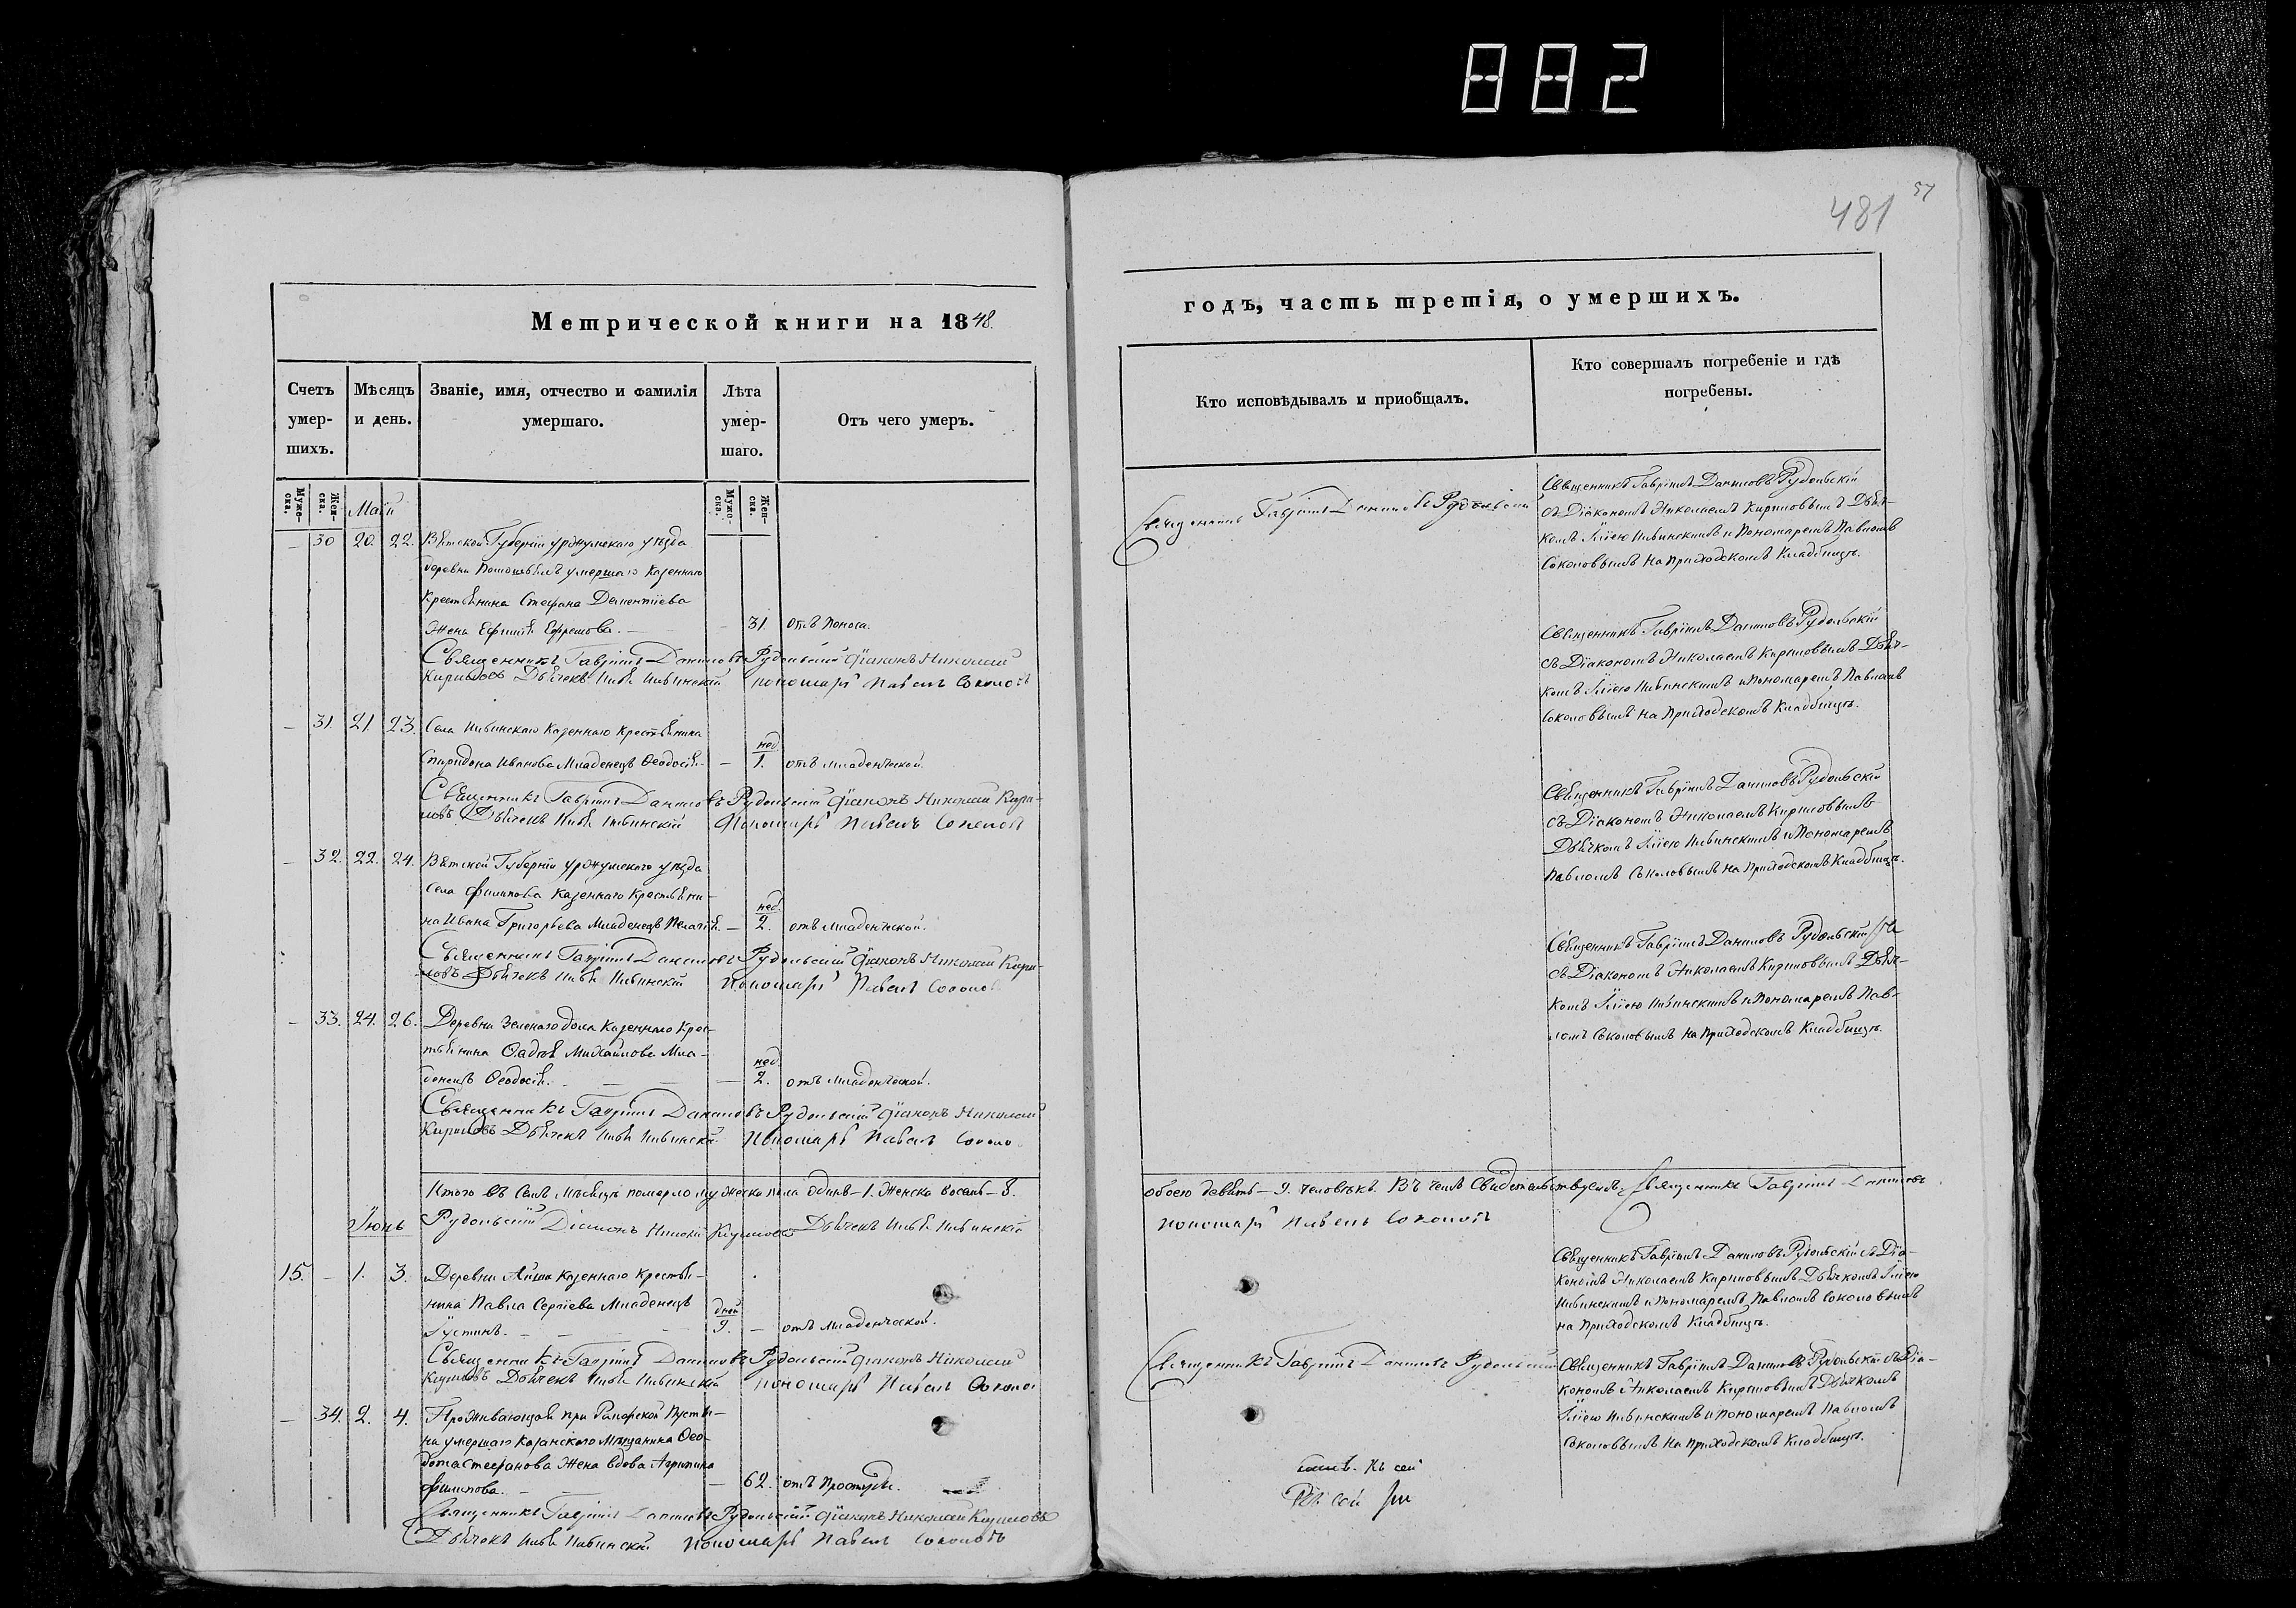 882
481
57
Метрической книги на 1848.
годъ, часть третія, о умершихъ.
Счетъ умер-шихъ.
Мѣсяцъ и день.
Званіе, имя, отчество и фамилія умершаго.
Лѣта умер-шаго.
Отъ чего умеръ.
Кто исповѣдывалъ и пріобщалъ.
Кто совершалъ погребеніе и гдѣ погребены.
Муже-ска.
Жен-ска.
Май
Муже-ска.
Жен-ска.
— 30 20. 22. Вятской Губерніи уржумскаго уѣзда
деревни умершаго Казеннаго
Крестьянина Стефана Дементіева
Жена Ефимія Ефремова. — 31. отъ поноса.
Священникъ Гавріилъ Даниловъ Рудольскій Діаконъ Николай
Кириловъ Дьячекъ Илья Ивинскій пономарь Павелъ Соколовъ
Священникъ Гавріилъ Даниловъ Рудольскій
Священникъ Гавріилъ Даниловъ Рудольскій
съ Діакономъ Николаемъ Кириловымъ Дьяч-
комъ Иліею Ивинскимъ и Пономаремъ Павломъ
Соколовымъ на Приходскомъ Кладбищѣ.
— 31 21. 23. Села Ивинскаго Казеннаго Крестьянина
Спиридона Иванова Младенецъ Ѳеодосія. — нед. 1. отъ младенческой.
Священникъ Гавріилъ Даниловъ Рудольскій Діаконъ Николай Кири-
ловъ Дьячекъ Илья Ивинскій Пономарь Павелъ Соколовъ
Священникъ Гавріилъ Даниловъ Рудольскій
съ Діакономъ Николаемъ Кириловымъ Дьяч-
комъ Иліею Ивинскимъ и Пономаремъ Павломъ
Соколовымъ на Приходскомъ Кладбищѣ.
— 32. 22. 24. Вятской Губерніи уржумскаго уѣзда
села Филипова Казеннаго Крестьяни-
на Ивана Григорьева Младенецъ Пелагія. — нед. 2. отъ младенческой.
Священникъ Гавріилъ Даниловъ Рудольскій Діаконъ Николай Кири-
ловъ Дьячекъ Илья Ивинскій Пономарь Павелъ Соколов
Священникъ Гавріилъ Даниловъ Рудольскій
съ Діакономъ Николаемъ Кириловымъ
Дьячкомъ Иліею Ивинскимъ и Пономаремъ
Павломъ Соколовымъ на Приходскомъ Кладбищѣ.
— 33. 24. 26. Деревни Зеленаго дола Казеннаго Крес-
тьянина Ѳадѣя Михайлова Мла-
денецъ Ѳеодосія. — нед. 2. отъ младенческой.
Священникъ Гавріилъ Даниловъ Рудольскій Діаконъ Николай
Кириловъ Дьячекъ Илья Ивинскій Пономарь Павелъ Соколо
Священникъ Гавріилъ Даниловъ Рудольскій
съ Діакономъ Николаемъ Кириловымъ Дьяч-
комъ Иліею Ивинскимъ и Пономаремъ Пав-
ломъ Соколовымъ на Приходскомъ Кладбищѣ.
Итого въ семъ мѣсяцѣ померло мужеска пола одинъ — 1. Женска восемь — 8.
обоего девять — 9. человѣкъ. Въ чемъ Свидетельствуемъ Священникъ Гавріилъ Даниловъ
Рудольскій Діаконъ Николай Кириловъ Дьячекъ Илья Ивинскій
пономарь Павелъ Соколовъ
Іюнь
15. — 1. 3. Деревни Казеннаго Крестья-
нина Павла Сергіева Младенецъ
Іустинъ. дней 9. — отъ младенческой.
Священникъ Гавріилъ Даниловъ Рудольскій Діаконъ Николай
Кириловъ Дьячекъ Илья Ивинскій пономарь Павелъ Соколов
Священникъ Гавріилъ Даниловъ Рудольскій съ Діа-
кономъ Николаемъ Кириловымъ Дьячкомъ Иліею
Ивинскимъ и Пономаремъ Павломъ Соколовымъ
на Приходскомъ Кладбищѣ.
— 34. 2. 4. Проживающая при Раиѳской Пусты-
ни умершаго Казанскаго Мѣщанина Ѳео-
дота Стефанова Жена вдова Агрипина
Филипова. — 62. отъ Простуды.
Священникъ Гавріилъ Даниловъ Рудольскій Діаконъ Николай Кириловъ
Дьячекъ Илья Ивинскій пономарь Павелъ Соколовъ
Священникъ Гавріилъ Даниловъ Рудольскій
Священникъ Гавріилъ Даниловъ Рудольскій съ Діа-
кономъ Николаемъ Кириловымъ Дьячкомъ
Иліею Ивинскимъ и Пономаремъ Павломъ
Соколовымъ на Приходскомъ Кладбищѣ.
Къ сей